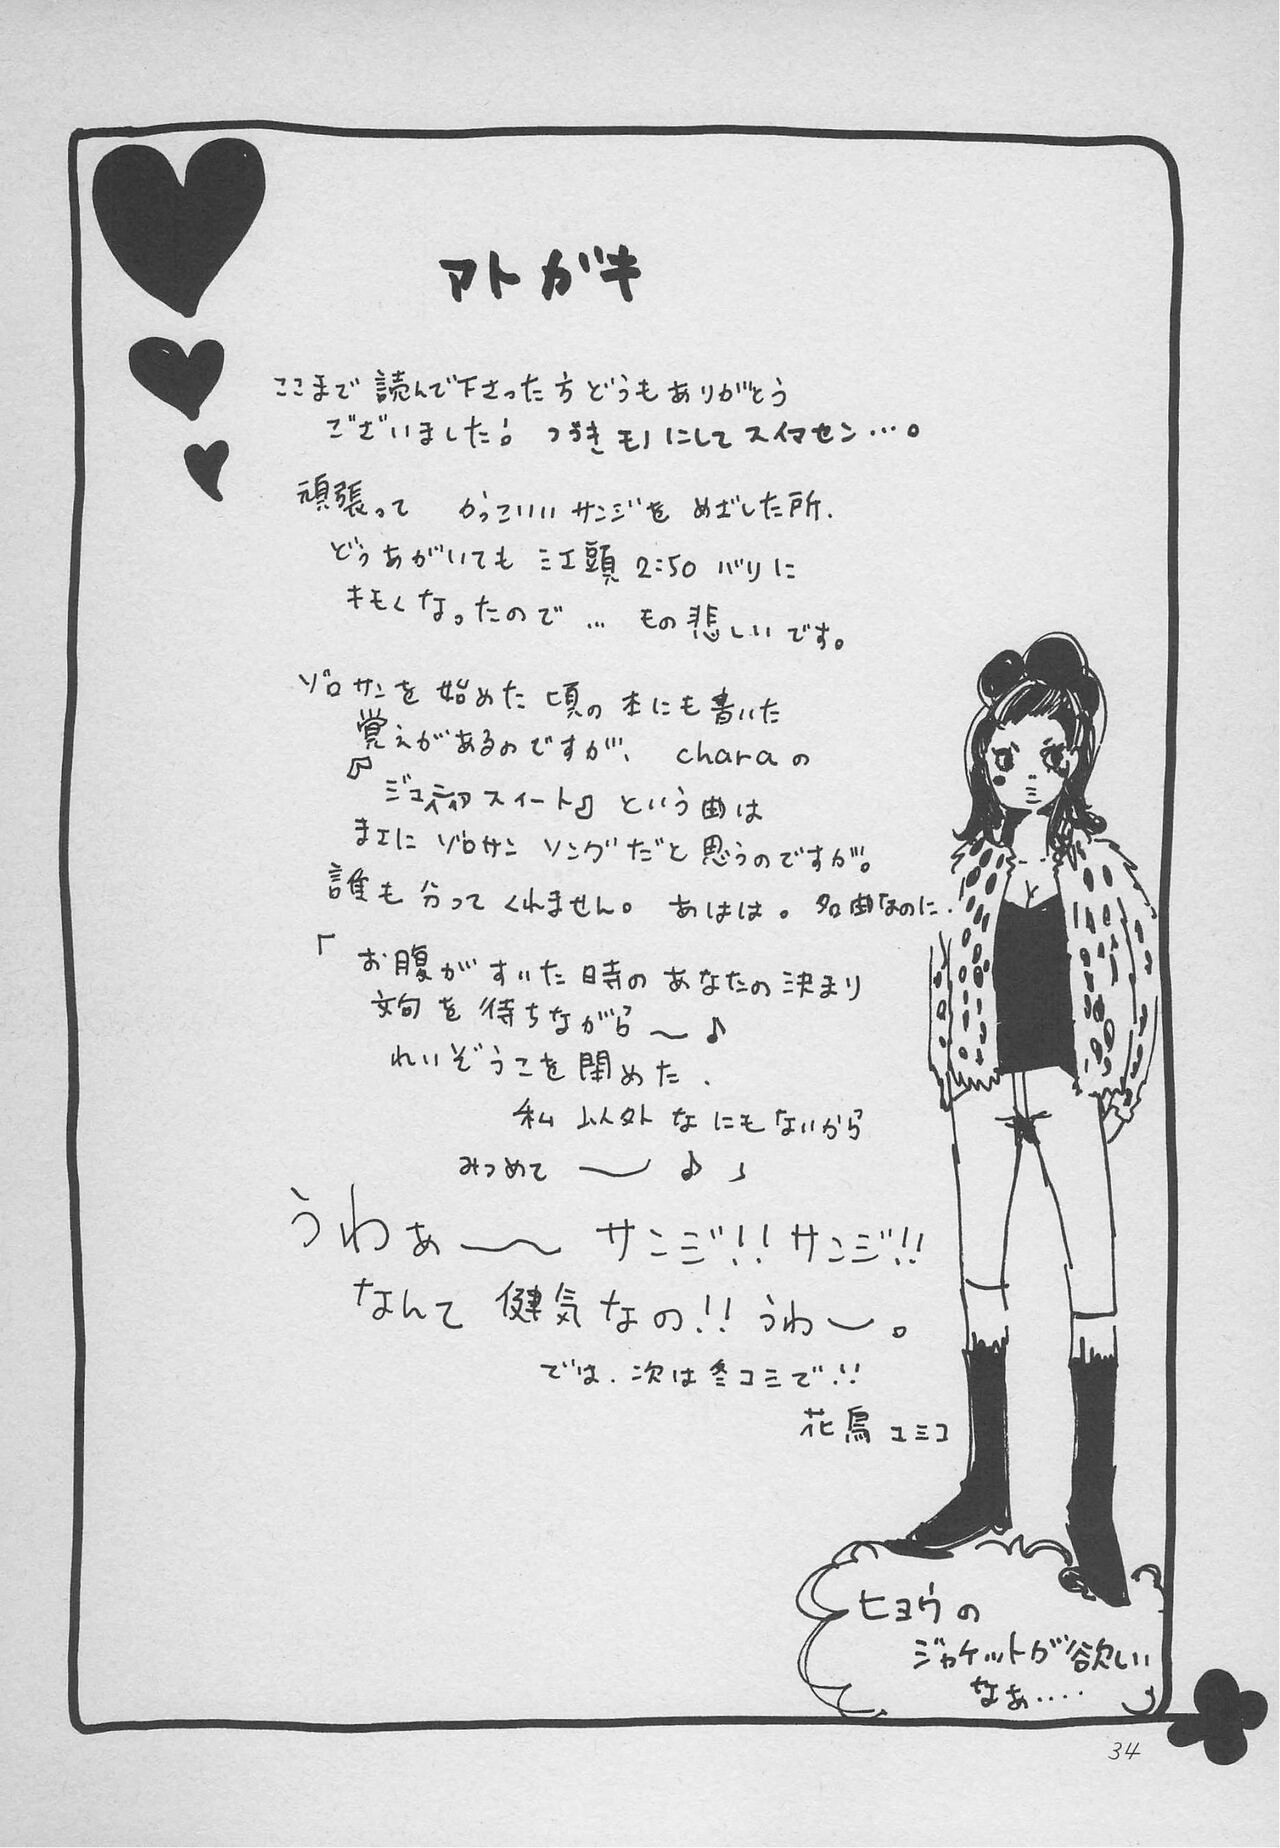 アトガキ
ここまで読んで下さった方どうもありがとう
ございました! つづきモノにしてスイマセン…。
頑張って かっこいいサンジを めざした所、
どうあがいても 江頭 2:50 バリに
キモくなったので … もの悲しいです。
ゾロサンを始めた頃の本にも書いた
覚えがあるのですが、charaの
『ジュニアスイート』という曲は
まエに ゾロサン ソングだと思うのですが。
誰も分ってくれません。あはは。名曲なのに、
「お腹がすいた時のあなたの決まり
文句を待ちながら〜♪
れいぞうこを閉めた、
私以外なにもないから
みつめて 〜♪」
うわぁ〜〜 サンジ!! サンジ!!
なんて健気なの!! うわ〜。
では、次は冬コミで!!
花鳥ユミコ
ヒョウの
ジャケットが欲しい
なぁ‥‥
34